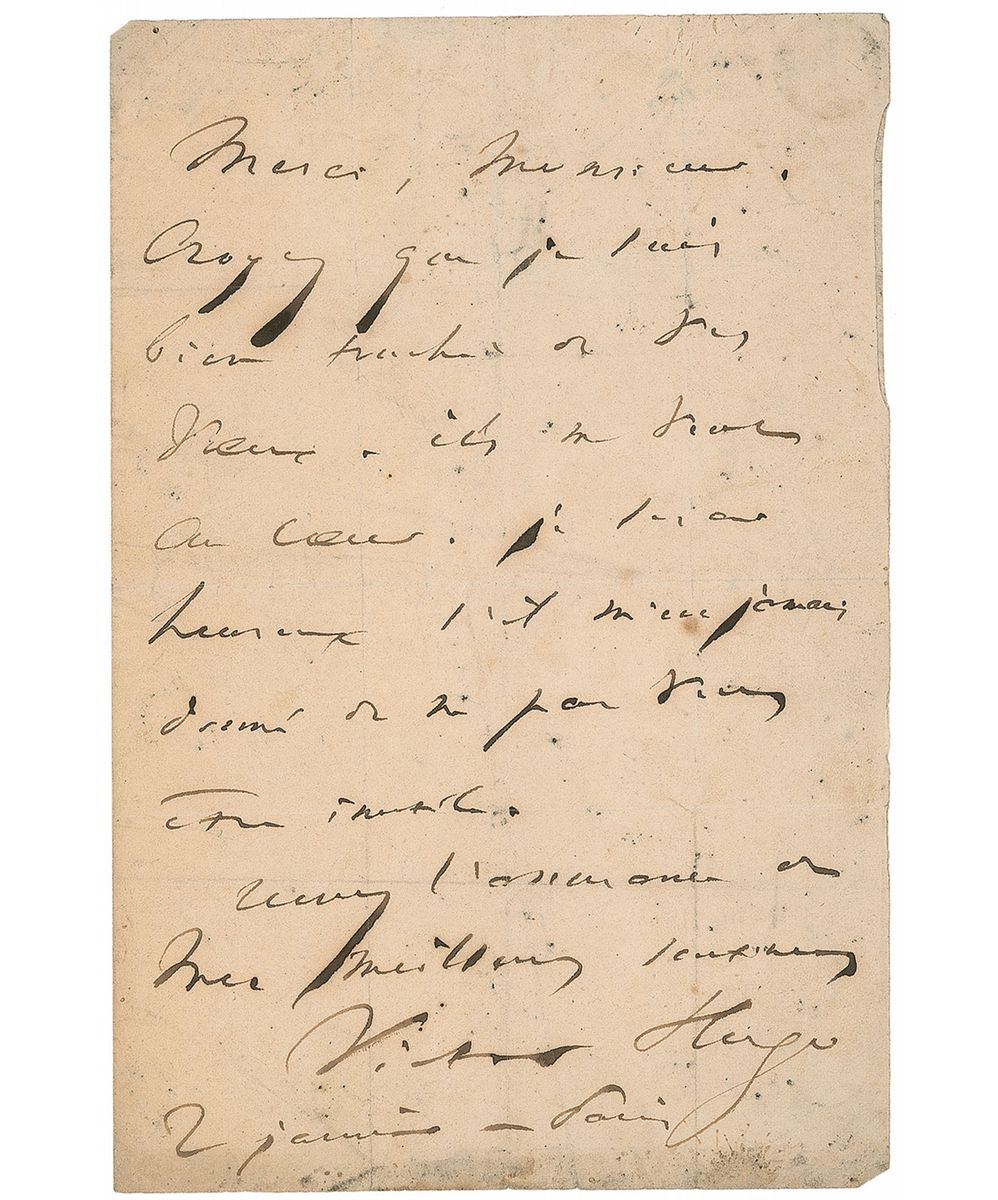 Merci, Monsieur.
Croyez que je suis
bien touché de vos
vœux. ils me vont
au cœur. je serai
heureux s'il m'est jamais
donné de ne pas vous
être inutile.
recevez l'assurance de
mes meilleurs sentiments
Victor Hugo
2 janvier – Paris